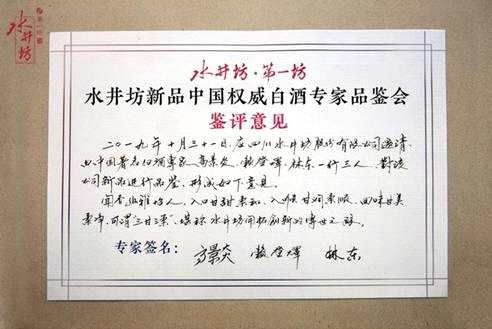 水井坊
第一坊
水井坊·第一坊
水井坊新品中国权威白酒专家品鉴会
鉴评意见
二〇一九年十月三十一日,应四川水井坊股份有限公司邀请
由中国著名白酒专家高景炎、赖登燡、林东一行三人,对该
公司新品进行品鉴,形成如下意见。
闻香幽雅怡人、入口甘甜柔和、入喉甘润柔顺、回味甘美
,可谓"三甘",堪称水井坊开拓创新的传世之
专家签名: 高景炎 赖登燡 林东